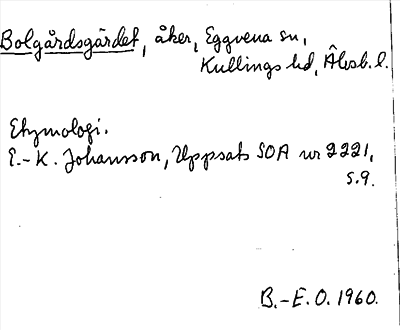 Bolgårdsgärdet, åker, Eggvena sn,
Kullings hd, Älvsb. l.
Etymologi.
E.-K. Johansson, Uppsats SOA nr 2221,
s.9.
B.-E.O. 1960.